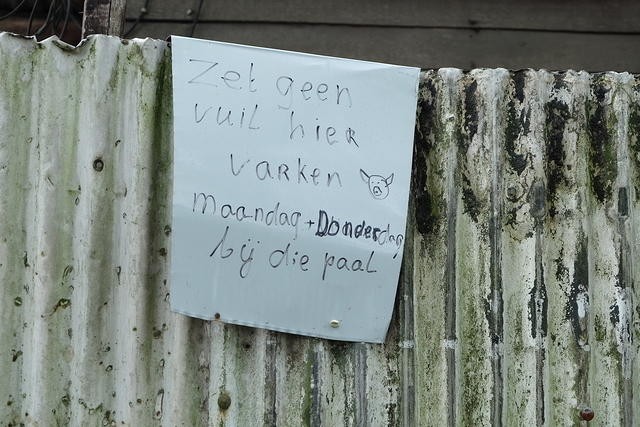 Zet geen
vuil hier
varken
maandag + Donderdag
bij die paal